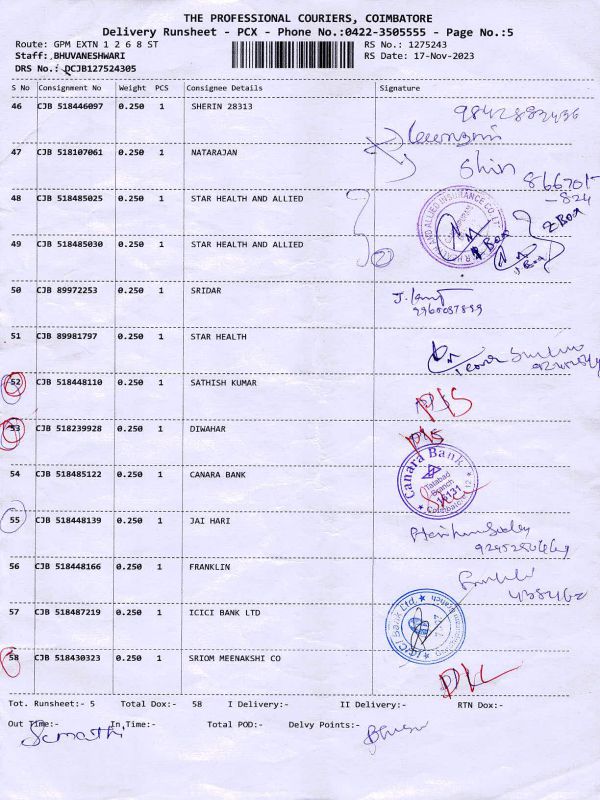 THE PROFESSIONAL COURIERS, COIMBATORE
Delivery Runsheet - PCX - Phone No.:0422-3505555 - Page No.:5
Route: GPM EXTN 1 2 6 8 ST
RS No.: 1275243
Staff: BHUVANESHWARI
RS Date: 17-Nov-2023
DRS No.: DCJB127524305
S No Consignment No Weight PCS Consignee Details Signature
46 CJB 518446097 0.250 1 SHERIN 28313
47 CJB 518107061 0.250 1 NATARAJAN
48 CJB 518485025 0.250 1 STAR HEALTH AND ALLIED
49 CJB 518485030 0.250 1 STAR HEALTH AND ALLIED
50 CJB 89972253 0.250 1 SRIDAR
51 CJB 89981797 0.250 1 STAR HEALTH
52 CJB 518448110 0.250 1 SATHISH KUMAR
53 CJB 518239928 0.250 1 DIWAHAR
54 CJB 518485122 0.250 1 CANARA BANK
Canara Bank
Tatabad
Branch
55 CJB 518448139 0.250 1 JAI HARI
56 CJB 518448166 0.250 1 FRANKLIN
57 CJB 518487219 0.250 1 ICICI BANK LTD
ICICI Bank Ltd.
58 CJB 518430323 0.250 1 SRIOM MEENAKSHI CO
Tot. Runsheet:- 5 Total Dox:- 58 I Delivery:- II Delivery:- RTN Dox:-
Out Time:- In,Time:- Total POD:- Delvy Points:-